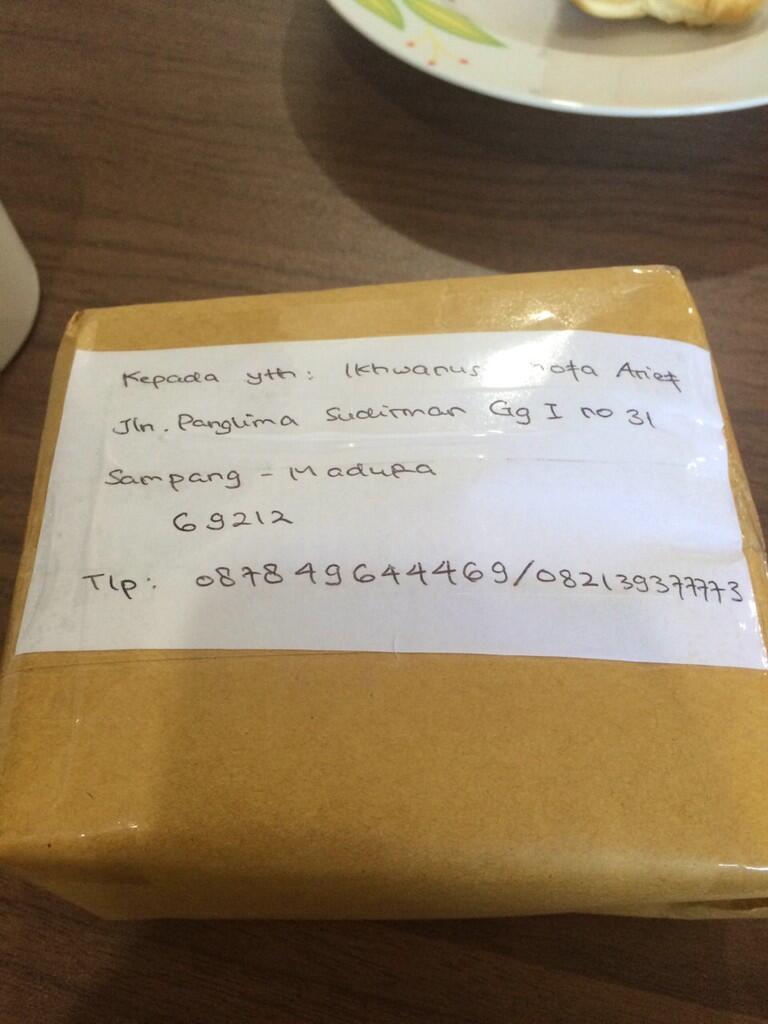 Kepada yth: Ikhwanus Arief
Jln. Panglima Sudirman Gg I no 31
Sampang - Madura
69212
Tlp: 087849644469/082139377773